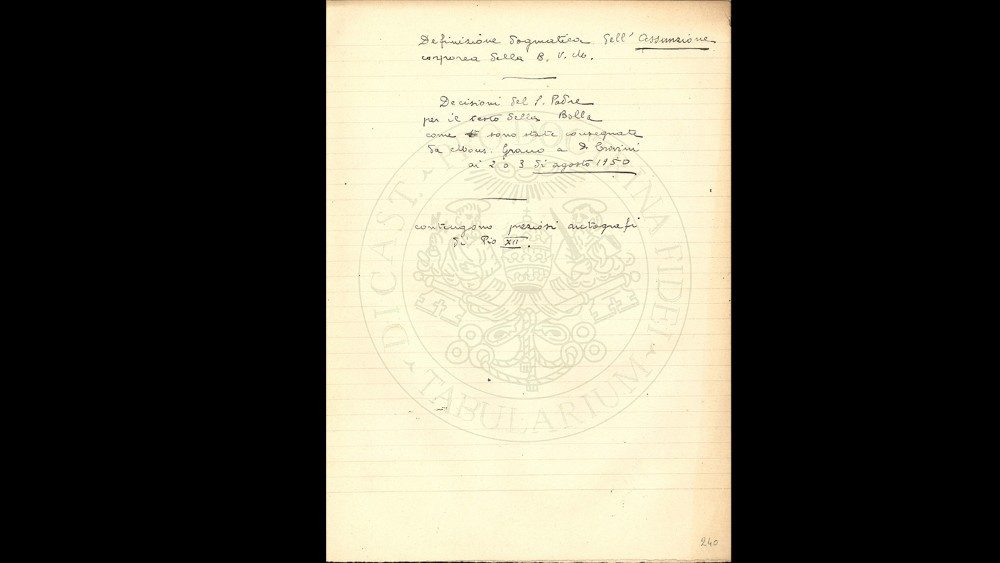 Definizione dogmatica dell' Assunzione
corporea della B. V. M.
Decisioni del S. Padre
per il testo della Bolla
come sono state consegnate
da Mons. Grano a D.
ai 2 o 3 di agosto 1950
contengono preziosi autografi
di Pio XII.
DICAST. PRO DOCTRINA FIDEI
TABULARIUM
240